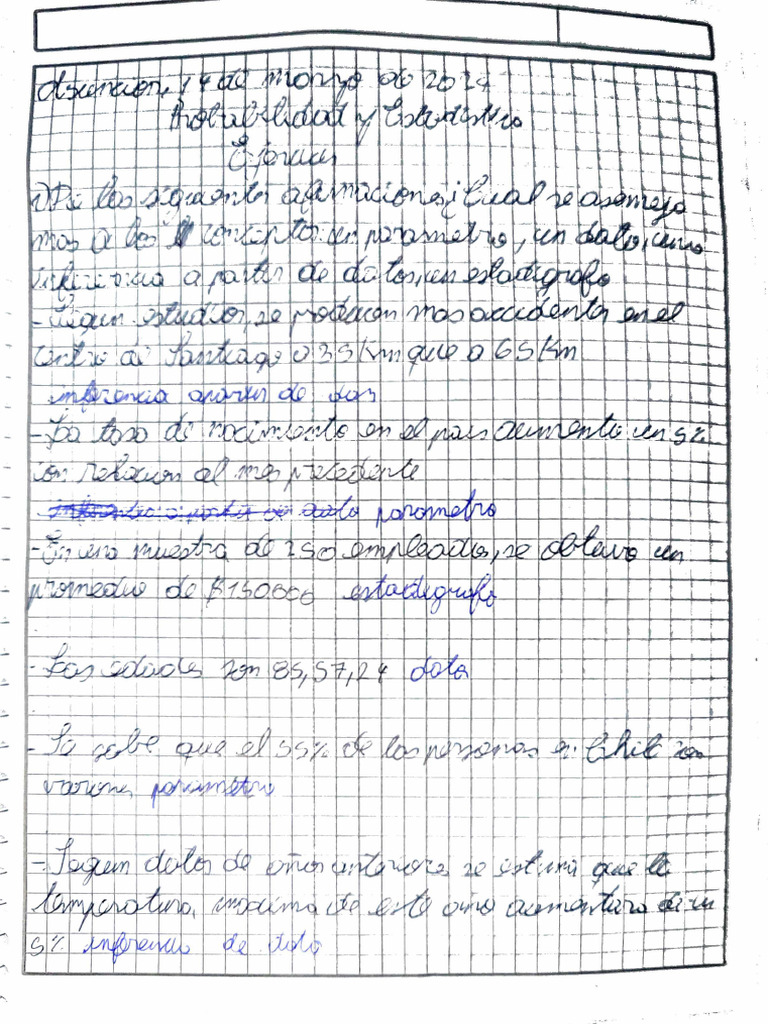 Asuncion, 14 de marzo de 2024
Probabilidad y Estadistica
Ejercicios
1) De las siguientes afirmaciones ¿Cual se asemeja
mas a los conceptos: un parametro, un dato, una
inferencia a partir de datos, un estadigrafo
- Segun estudios, se producen mas accidentes en el
centro de Santiago a 35 Km que a 65 Km
inferencia apartir de datos
- La tasa de nacimiento en el pais aumento un 5%
con relacion al mes precedente
inferencia a partir de dato parametro
- En una muestra de 250 empleados, se obtuvo un
promedio de $150000 estadigrafo
- Las edades son 85, 57, 24 dato
- Se sabe que el 55% de las personas en Chile son
varones parametro
- Segun datos de años anteriores se estima que la
temperatura maxima de este año aumentara de un
5% inferencia de dato